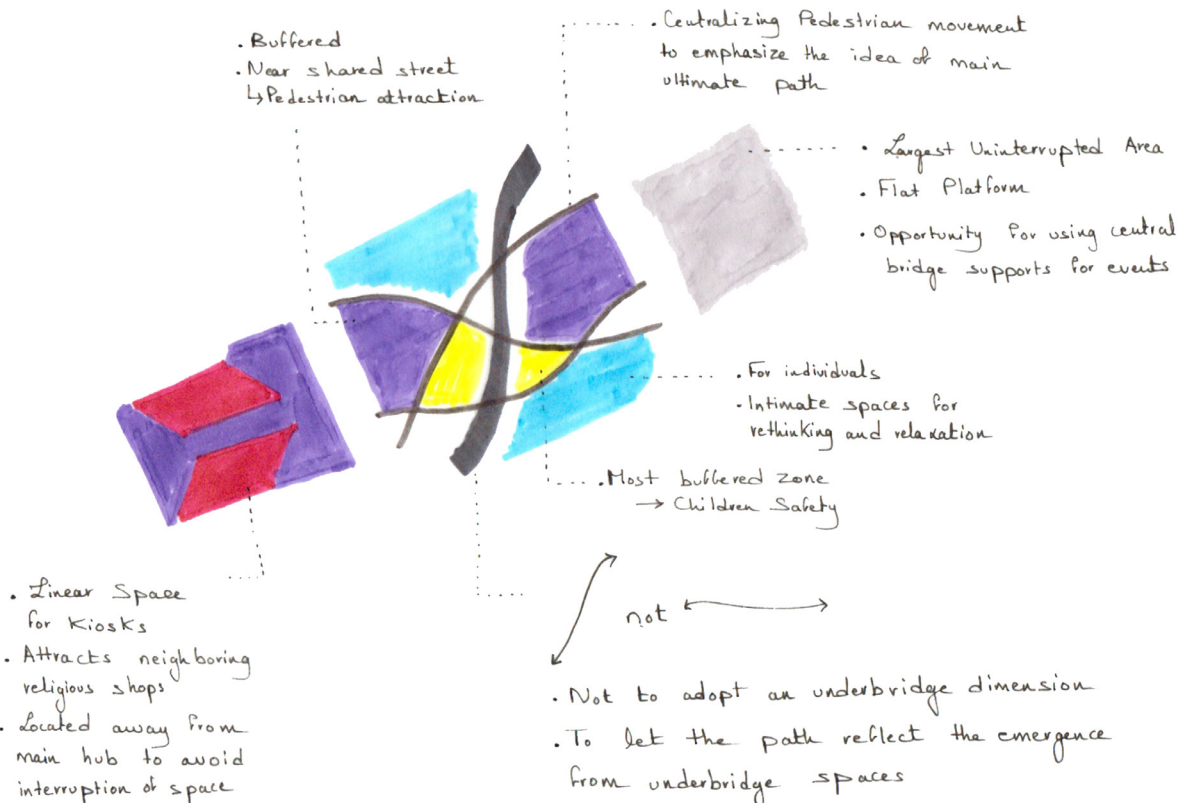 . Buffered
. Near shared street
↳ Pedestrian attraction
. Centralizing Pedestrian movement
to emphasize the idea of main
ultimate path
. Largest Uninterrupted Area
. Flat Platform
. Opportunity for using central
bridge supports for events
. For individuals
. Intimate spaces for
rethinking and relaxation
. Most buffered zone
→ Children Safety
. Linear Space
for Kiosks
. Attracts neighboring
religious shops
. Located away from
main hub to avoid
interruption of space
not
. Not to adopt an underbridge dimension
. To let the path reflect the emergence
from underbridge spaces